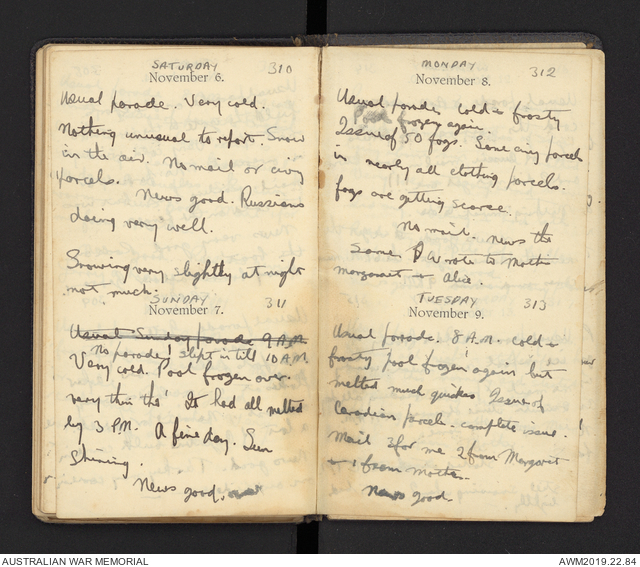 SATURDAY
November 6.
310
Usual parade. Very cold.
Nothing unusual to report. Snow
in the air. No mail or civvy
parcels.
News good. Russians
doing very well.
Snowing very slightly at night
not much.
SUNDAY
November 7.
311
Usual Sunday parade 9 A.M.
No parade! slept in till 10 A.M.
Very cold. Pool frozen over
very thin tho' It had all melted
by 3 P.M. A fine day. Sun
shining.
News good.
MONDAY
November 8.
312
Usual parade. cold & frosty
Pool frozen again.
Issue of 50 fags. Some civvy parcels
in nearly all clothing parcels.
fags are getting scarce.
No mail. News the
same. I wrote to Mother
Margaret & Alice.
TUESDAY
November 9.
313
Usual parade. 8 A.M. cold &
frosty pool frozen again but
melted much quicker Issue of
Canadian parcels. complete issue.
Mail 3 for me 2 from Margaret
& 1 from Mother.
News good.
AUSTRALIAN WAR MEMORIAL
AWM2019.22.84